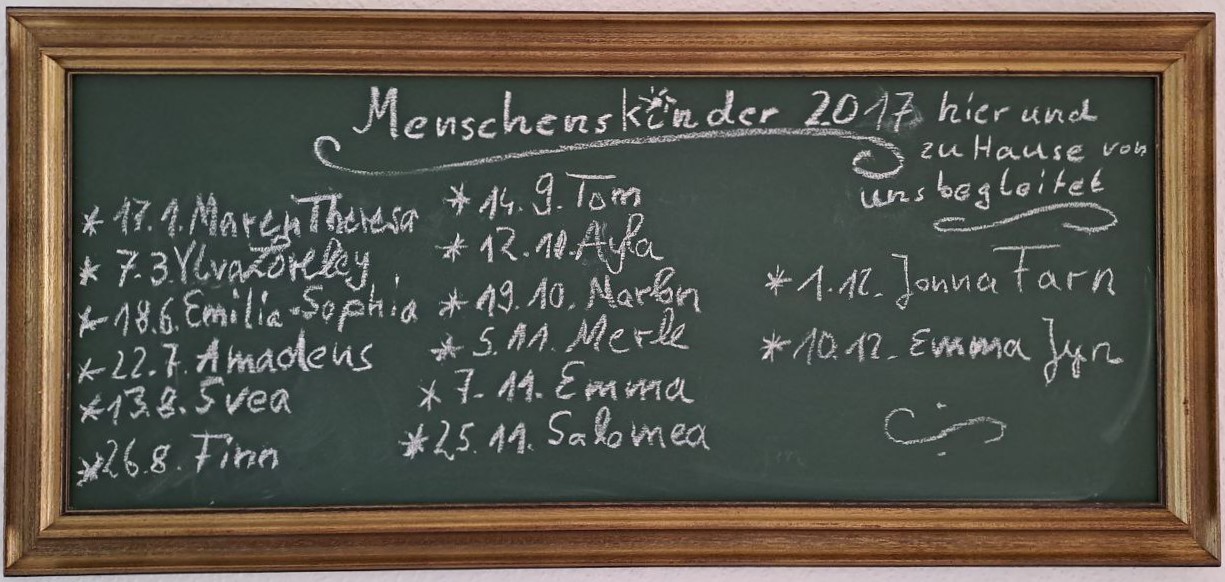 Menschenskinder 2017 hier und
zu Hause von
uns begleitet
* 17.1. Maren Theresa
* 7.3. Ylva Loreley
* 18.6. Emilia-Sophia
* 22.7. Amadeus
* 13.8. Svea
* 26.8. Finn
* 14.9. Tom
* 12.10. Ayla
* 19.10. Marlon
* 5.11. Merle
* 7.11. Emma
* 25.11. Salomea
* 1.12. Jonna Farn
* 10.12. Emma Jyn